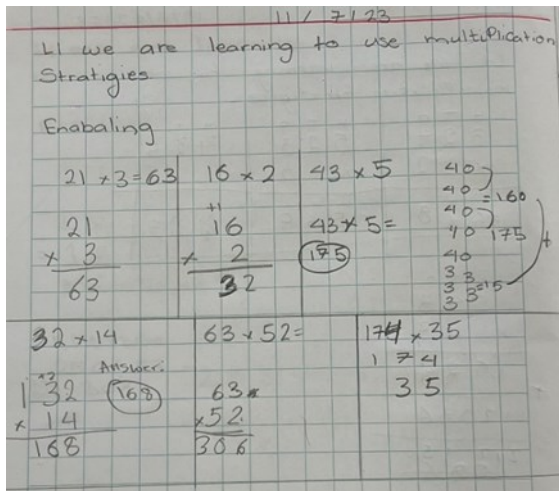 11/7/23
LI we are learning to use multiplication
Stratigies
Enabaling
21 × 3 = 63
21
× 3
63
16 × 2
+1
16
× 2
32
43 × 5
43 × 5 =
175
40
40
40 = 160
40 175
40 +
3 3
3 3 = 15
3
32 × 14
Answer:
168
+2
1 32
× 14
168
63 × 52 =
63
× 52
306
174 × 35
1 7 4
3 5